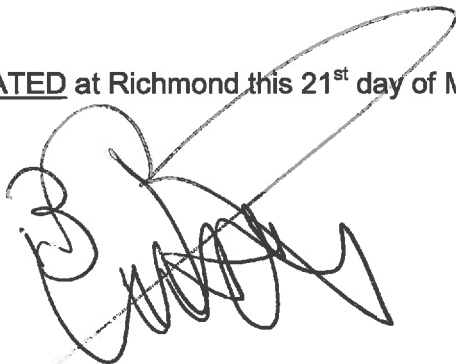 ATED at Richmond this 21st day of M